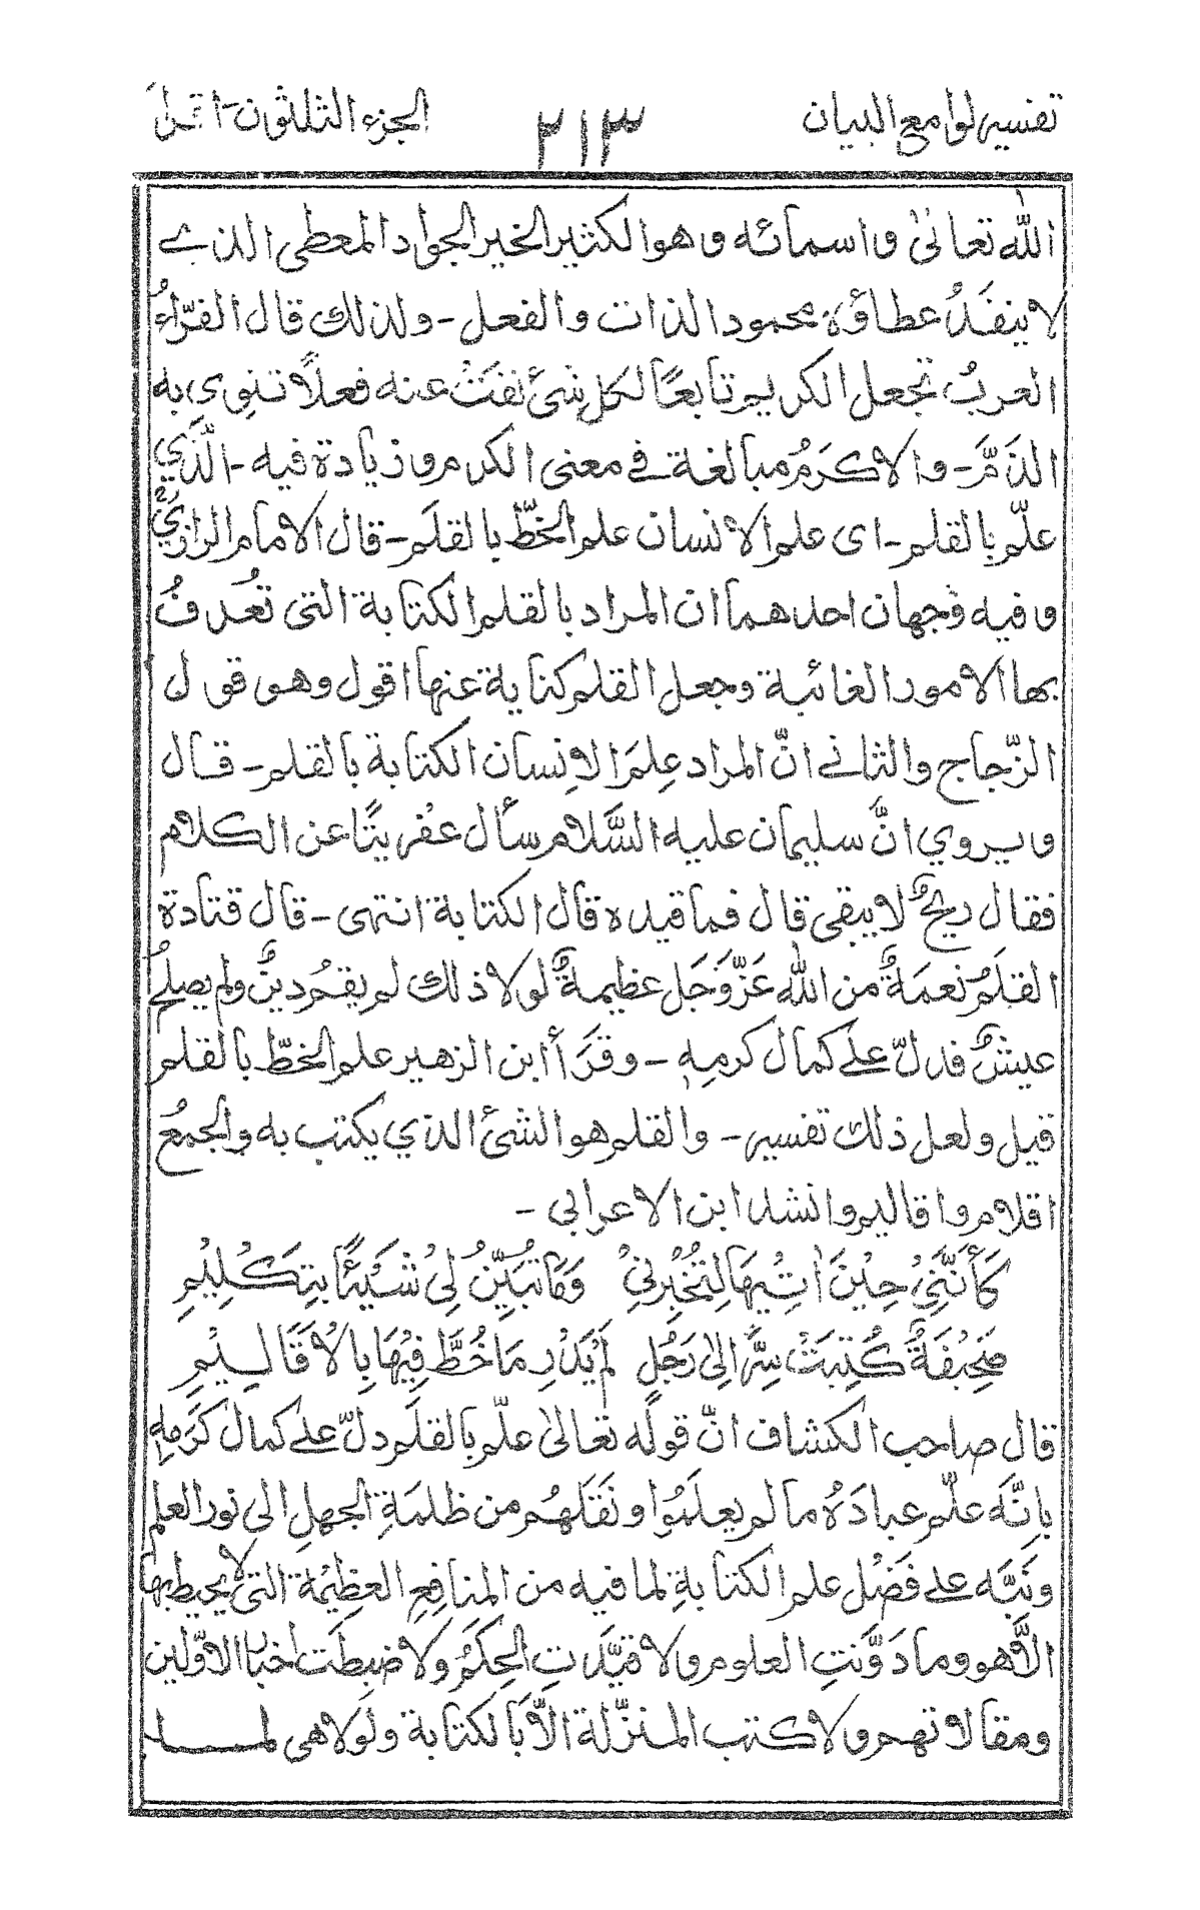 تفسير لوامع البيان ٣١٣ الجزء الثلثون-اقرأ
الله تعالىٰ واسمائه وهو الكثير الخير الجواد المعطى الذے
لا ينفَدُ عطاؤه محمود الذات والفعل-ولذلك قال الفرّاءُ
العربُ تجعل الكريم تابعًا لكل شئ نفَتْ عنه فعلاً تنوى به
الذمَّ-والاكرمُ مبالغة فے معنى الكرم و زيادة فيه-الَّذي
علّم بالقلم-اى علم الانسان علم الخطّ بالقلَم-قال الامام الرازيُّ
وفيه وجهان احدهما ان المراد بالقلم الكتابة التى تُعرفُ
بها الامور الغائبة وجعل القلم كناية عنها اقول وهو قول
الزّجاج والثانے انّ المراد عِلمَ الاِنسان الكتابة بالقلم-قال
ويروي انَّ سليمان عليه السَّلام سأل عفريتًا عن الكلام
فقال ريحٌ لا يبقى قال فما قيده قال الكتابة انتهى-قال قتادة
القلَمُ نعمَةٌ من الله عَزَّوَجَل عظيمةٌ لولا ذلك لم يقُم دينٌ ولم يصلح
عيشٌ فدلّ علے كمال كرمِه-وقرَأ ابن الزهير علم الخطّ بالقلم
قيل ولعل ذلك تفسير-والقلم هو الشئ الذي يكتب به والجمعُ
اقلام واقاليم وانشد ابن الاعرابي-
كَأَنَّنِيْ حِيْنَ اٰتِيْهَا لِتُخْبِرنِيْ وَمَا تُبَيِّنُ لِىْ شَيْئًا بِتَكْلِيْمِ
صَحِيْفَةٌ كُتِبَتْ سِرًّا اِلىٰ رَجُلٍ لَمْ يَدْرِ مَا خُطَّ فِيْهَا بِالْاَقَالِيْمِ
قال صاحب الكشاف انّ قولَه تعالىٰ علّم بالقلَم دلّ علے كمال كَرَمِه
بِانَّه علّم عبادَهُ ما لم يعلَمُوا ونقَلَهُم من ظلمَةِ الجهلِ الى نور العلم
ونَبَّه علے فَضْل علم الكتابةِ لما فيه من المنافِعِ العظِيْمَة التى لا يحيط بها
الَّا هو وما دَوَّنتِ العلوم ولا قيَّدتِ الحِكَمُ ولا ضبِطَت اخبار الاوّلين
ومقالاتهم ولا كتب المنزّلة الّا بالكتابة ولولا هى لمـــا